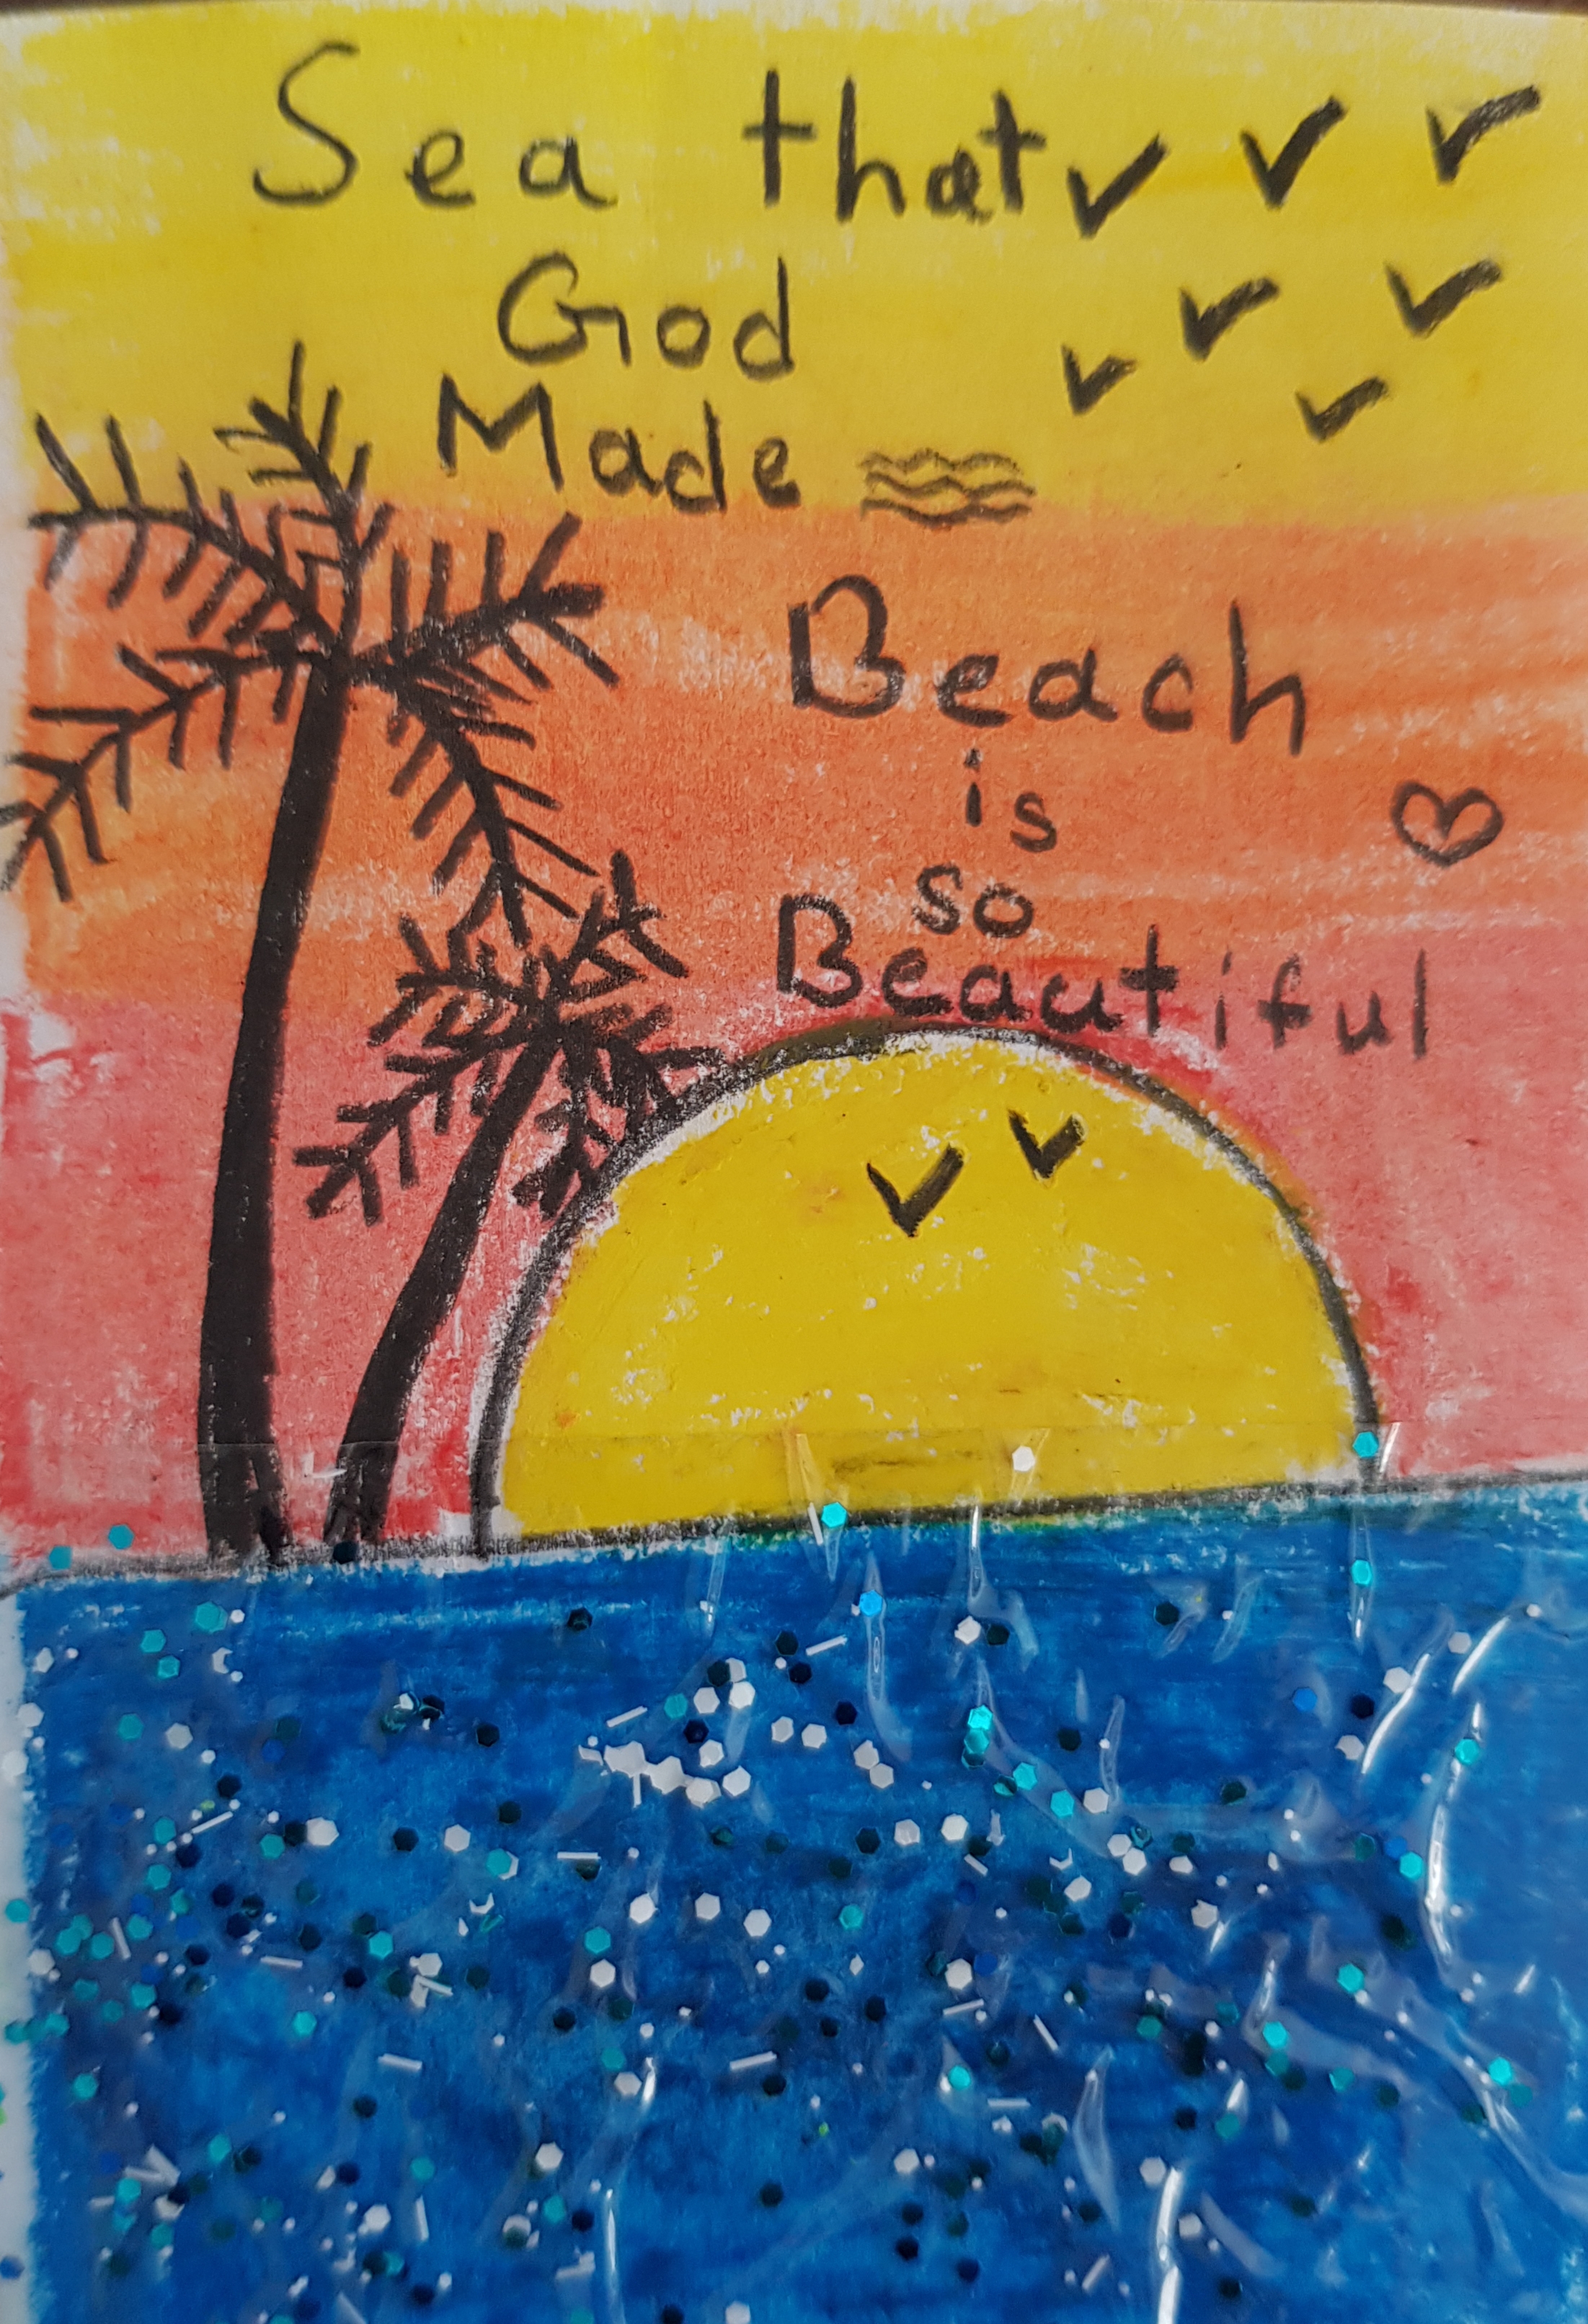 Sea that
God
Made
Beach
is
so
Beautiful